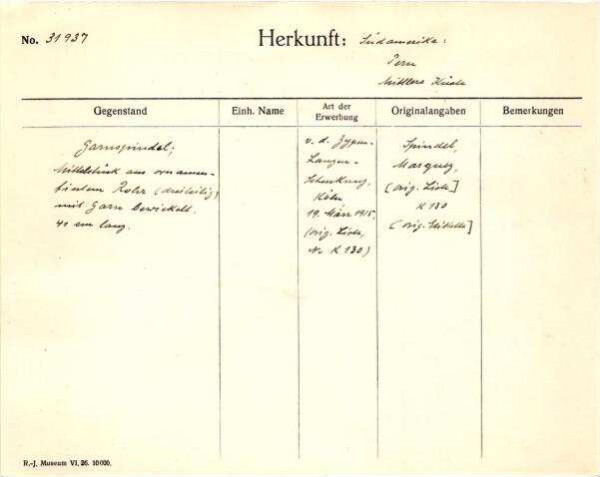 No. 31937
Herkunft: Südamerika:
Peru
Mittlere Küste
Gegenstand
Einh. Name
Art der
Erwerbung
Originalangaben
Bemerkungen
Garnspindel;
Mittelstück aus ornamen-
tiertem Rohr (dreiteilig)
mit Garn bewickelt.
40 cm lang.
v. d. Zypen-
Langen-
Schenkung,
Köln
19. März 1915.
(orig. Liste,
Nr. K 130)
Spindel,
Marquez,
(orig. Liste]
K 130
(orig. Etikette]
R.-J. Museum VI. 26. 10000.